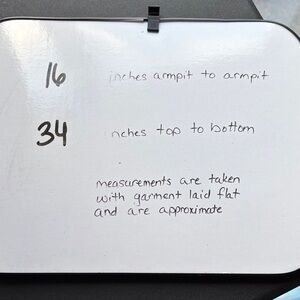 16 inches armpit to armpit
34 inches top to bottom
measurements are taken
with garment laid flat
and are approximate